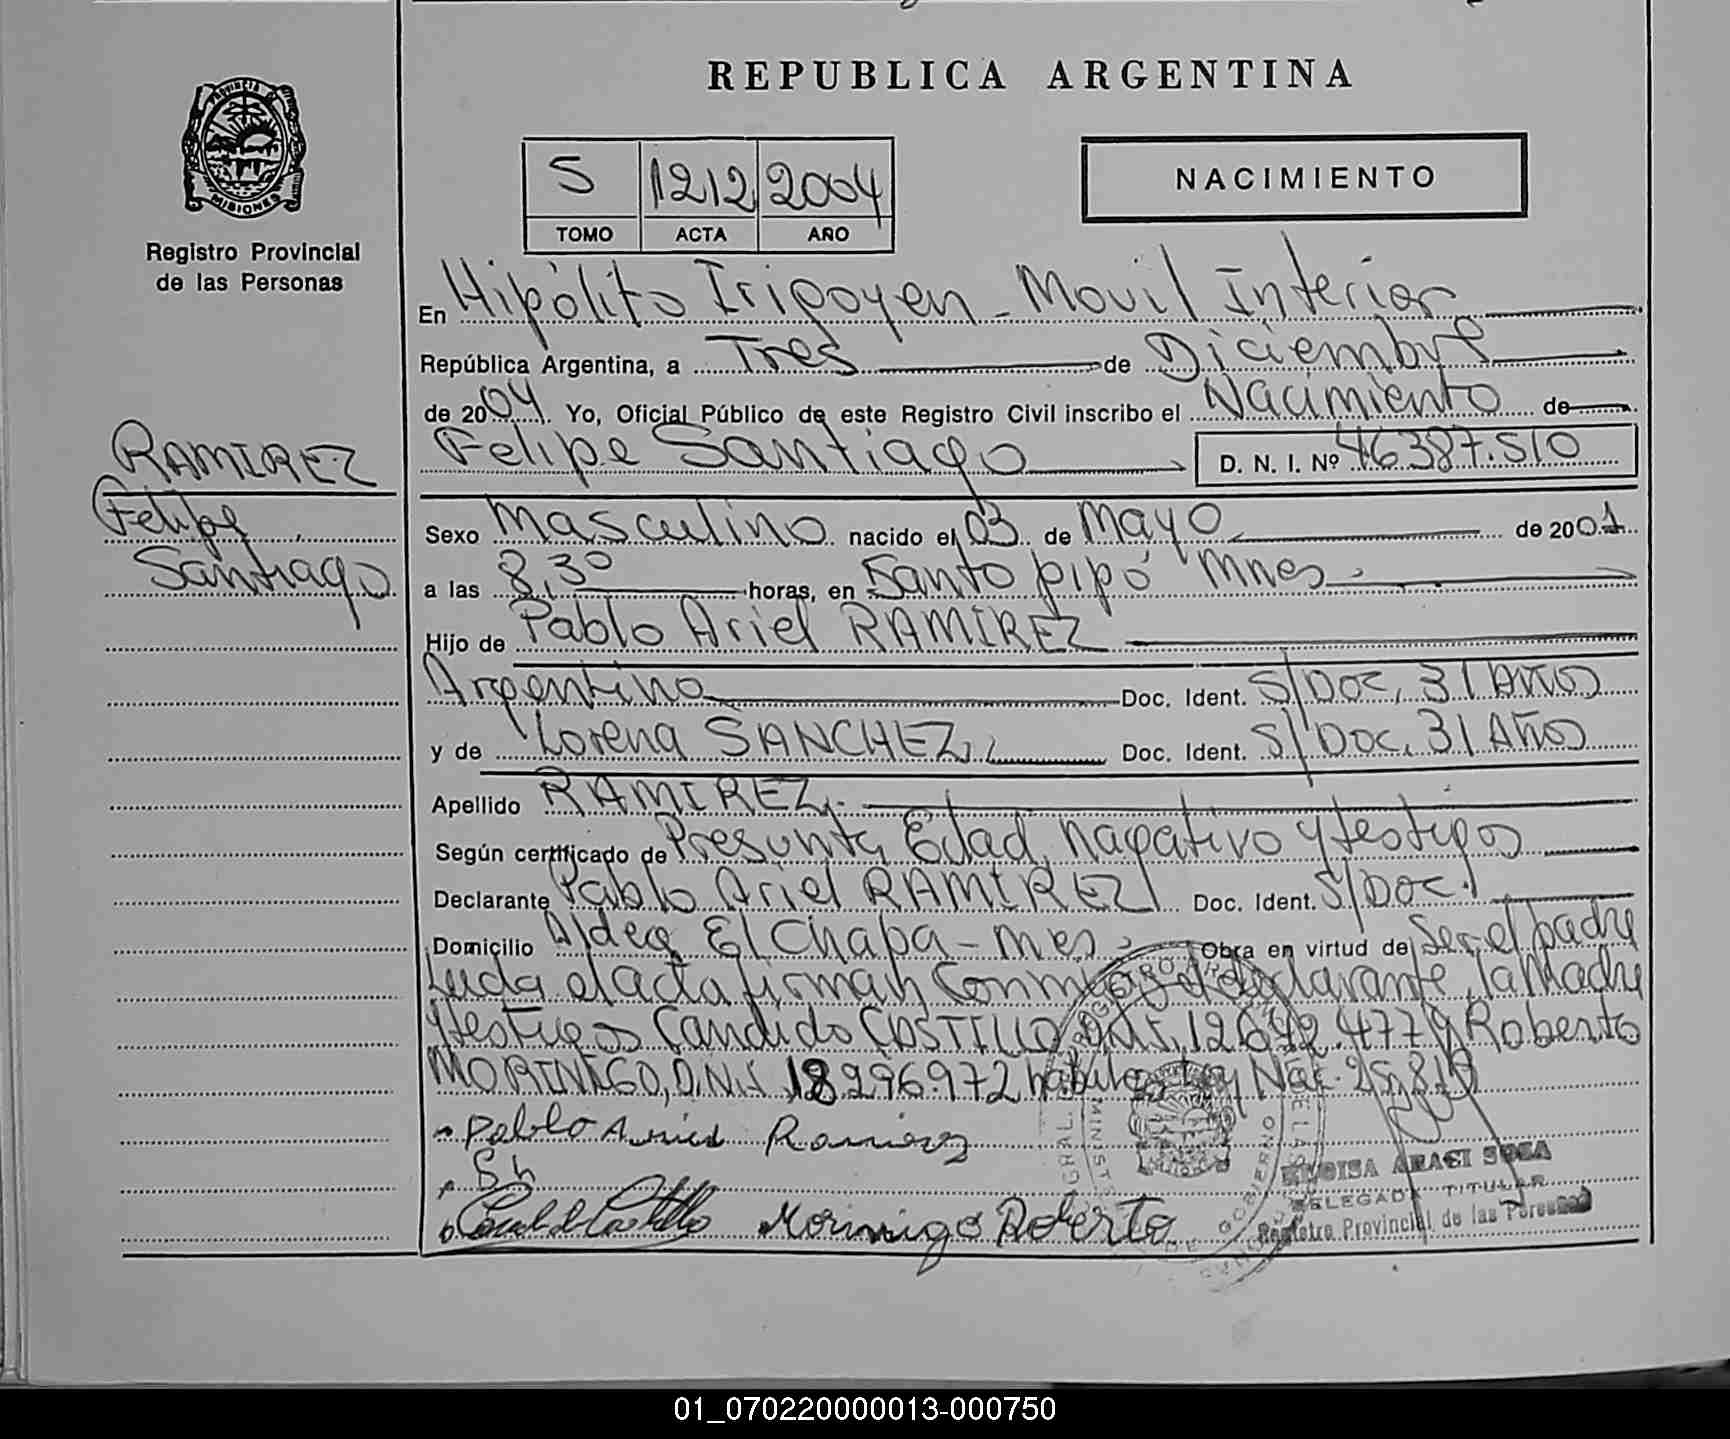 REPUBLICA ARGENTINA
PROVINCIA DE
MISIONES
Registro Provincial
de las Personas
5 1212 2004
TOMO ACTA AÑO
NACIMIENTO
En Hipólito Irigoyen - Movil Interior
República Argentina, a Tres de Diciembre
de 2004. Yo, Oficial Público de este Registro Civil inscribo el Nacimiento de
Felipe Santiago D. N. I. Nº 46387.510
RAMIREZ
Felipe
Santiago
Sexo Masculino nacido el 03 de Mayo de 2001
a las 8,30 horas, en Santo pipó Mnes.
Hijo de Pablo Ariel RAMIREZ
Argentino Doc. Ident. S/Doc, 31 AÑOS
y de Lorena SANCHEZ Doc. Ident. S/Doc, 31 AÑOS
Apellido RAMIREZ
Según certificado de Presunta Edad, nagativo y testigos
Declarante Pablo Ariel RAMIREZ Doc. Ident. S/Doc.
Domicilio Aldea El Chapa - mes. Obra en virtud de Ser el padre
Leida el acta firman Conmigo el declarante, la Madre
y testigos Candido CASTILLO D.N.I. 12.642.477 y Roberto
MORINIGO, D.N.I. 18.296.972 Ley Nac. 25.819
Pablo Ariel Ramirez
Morinigo Roberto
ELOISA ARACI SOSA
DELEGADA TITULAR
Registro Provincial de las Personas
01_070220000013-000750